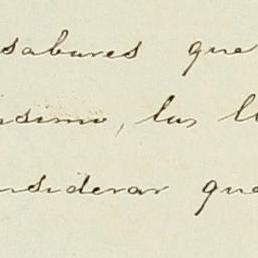 sabures que
simo, las
nsiderar que